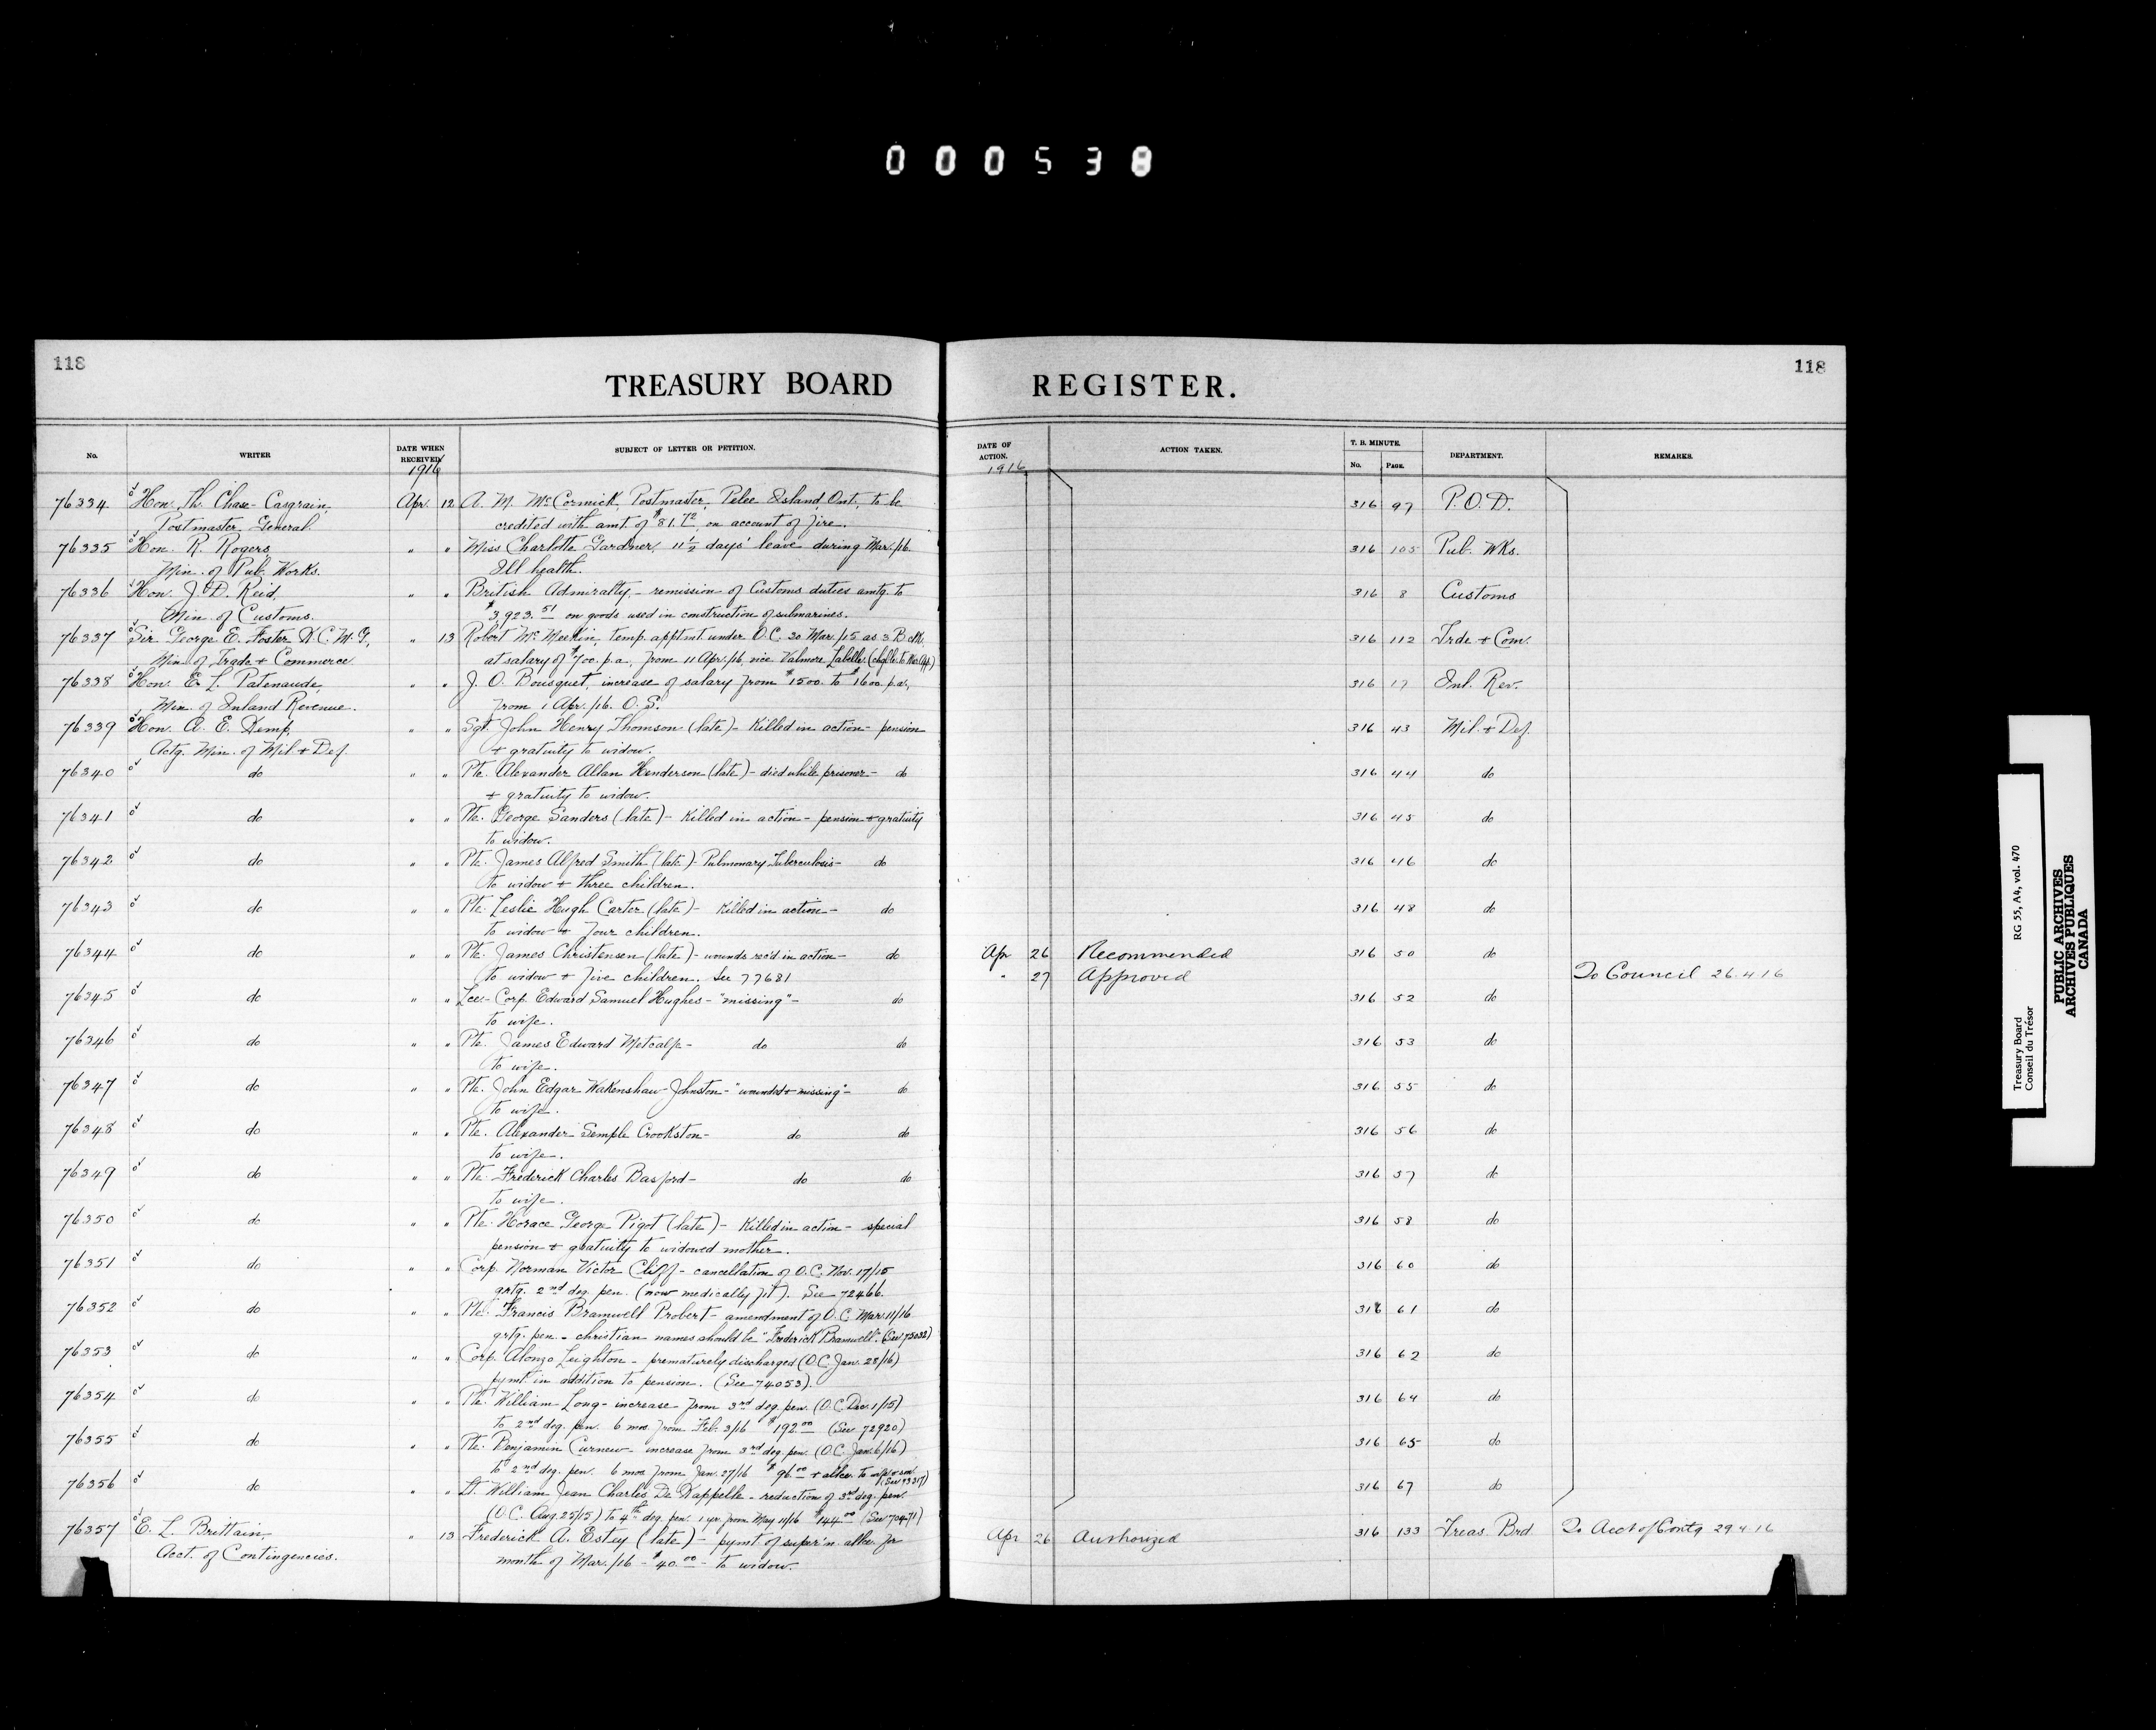 000538
118
TREASURY BOARD
No.
WRITER
DATE WHEN RECEIVED
1916
SUBJECT OF LETTER OR PETITION.
76334 Hon. Th. Chase-Casgrain, Apr. 12 A. M. McCormick, Postmaster, Pelee Island, Ont., to be
Postmaster General. credited with amt. of $81.72, on account of fire.
76335 Hon. R. Rogers, " " Miss Charlotte Gardner, 11½ days' leave during Mar./16.
Min. of Pub. Works. Ill health.
76336 Hon. J. D. Reid, " " British Admiralty - remission of Customs duties amtg. to
Min. of Customs. $3,923.51 on goods used in construction of submarines.
76337 Sir George E. Foster K.C.M.G., " 13 Robert McMeekin, temp. apptmt. under O.C. 30 Mar./15 as 3 B clk.
Min. of Trade & Commerce at salary of $700. p.a., from 11 Apr./16, vice Valmore Labelle,
76338 Hon. E. L. Patenaude, " " J. O. Bousquet, increase of salary from $1500. to $1600. p.a.,
Min. of Inland Revenue. from 1 Apr./16. O.S.
76339 Hon. A. E. Kemp, " " Sgt. John Henry Thomson (late) - Killed in action - pension
Actg. Min. of Mil. & Def. & gratuity to widow.
76340 do " " Pte. Alexander Allan Henderson (late) - died while prisoner - do
& gratuity to widow.
76341 do " " Pte. George Sanders (late) - Killed in action - pension & gratuity
to widow.
76342 do " " Pte. James Alfred Smith (late) - Pulmonary Tuberculosis - do
to widow & three children.
76343 do " " Pte. Leslie Hugh Carter (late) - Killed in action - do
to widow & four children.
76344 do " " Pte. James Christensen (late) - wounds rec'd in action - do
to widow & five children. See 77681
76345 do " " Lce-Corp. Edward Samuel Hughes - "missing" - do
to wife.
76346 do " " Pte. James Edward Metcalfe - do do
to wife.
76347 do " " Pte. John Edgar Wakenshaw-Johnston - "wounded & missing" - do
to wife.
76348 do " " Pte. Alexander Semple Crookston - do do
to wife.
76349 do " " Pte. Frederick Charles Basford - do do
to wife.
76350 do " " Pte. Horace George Pigot (late) - Killed in action - special
pension & gratuity to widowed mother.
76351 do " " Corp. Norman Victor Cliff - cancellation of O.C. Nov. 17/15
grtg. 2nd deg. pen. (now medically fit). See 72466.
76352 do " " Pte. Francis Bramwell Probert - amendment of O.C. Mar. 11/16
grtg. pen. - christian names should be "Frederick Bramwell". (See 75032)
76353 do " " Corp. Alonzo Leighton - prematurely discharged (O.C. Jan. 28/16)
pymt. in addition to pension. (See 74053).
76354 do " " Pte. William Long - increase from 3rd deg. pen. (O.C. Dec. 1/15)
to 2nd deg. pen. 6 mos. from Feb. 3/16 $192.00 (See 72920)
76355 do " " Pte. Benjamin Curnew - increase from 3rd deg. pen. (O.C. Jan. 6/16)
to 2nd deg. pen. 6 mos. from Jan. 27/16 $96.00 + allce. to wife & son.
76356 do " " Lt. William Jean Charles De Kappelle - reduction of 3rd deg. pen.
(O.C. Aug. 25/15) to 4th deg. pen. 1 yr. from May 11/16 $144.00 (See 70471)
76357 E. L. Brittain, " 13 Frederick A. Estey (late) - pymt. of super'n. allce. for
Acct. of Contingencies. month of Mar./16 - $40.00 - to widow.
118
REGISTER.
DATE OF ACTION.
1916
ACTION TAKEN.
T. B. MINUTE.
No. PAGE.
DEPARTMENT.
REMARKS.
316 97 P.O.D.
316 105 Pub. Wks.
316 8 Customs
316 112 Trde & Com.
316 17 Inl. Rev.
316 43 Mil. & Def.
316 44 do
316 45 do
316 46 do
316 48 do
Apr 26 Recommended 316 50 do
" 27 Approved To Council 26.4.16
316 52 do
316 53 do
316 55 do
316 56 do
316 57 do
316 58 do
316 60 do
316 61 do
316 62 do
316 64 do
316 65 do
316 67 do
Apr 26 Authorized 316 133 Treas. Brd. To Acct of Contg 29.4.16
Treasury Board RG 55, A4, vol. 470
Conseil du Trésor
PUBLIC ARCHIVES
ARCHIVES PUBLIQUES
CANADA